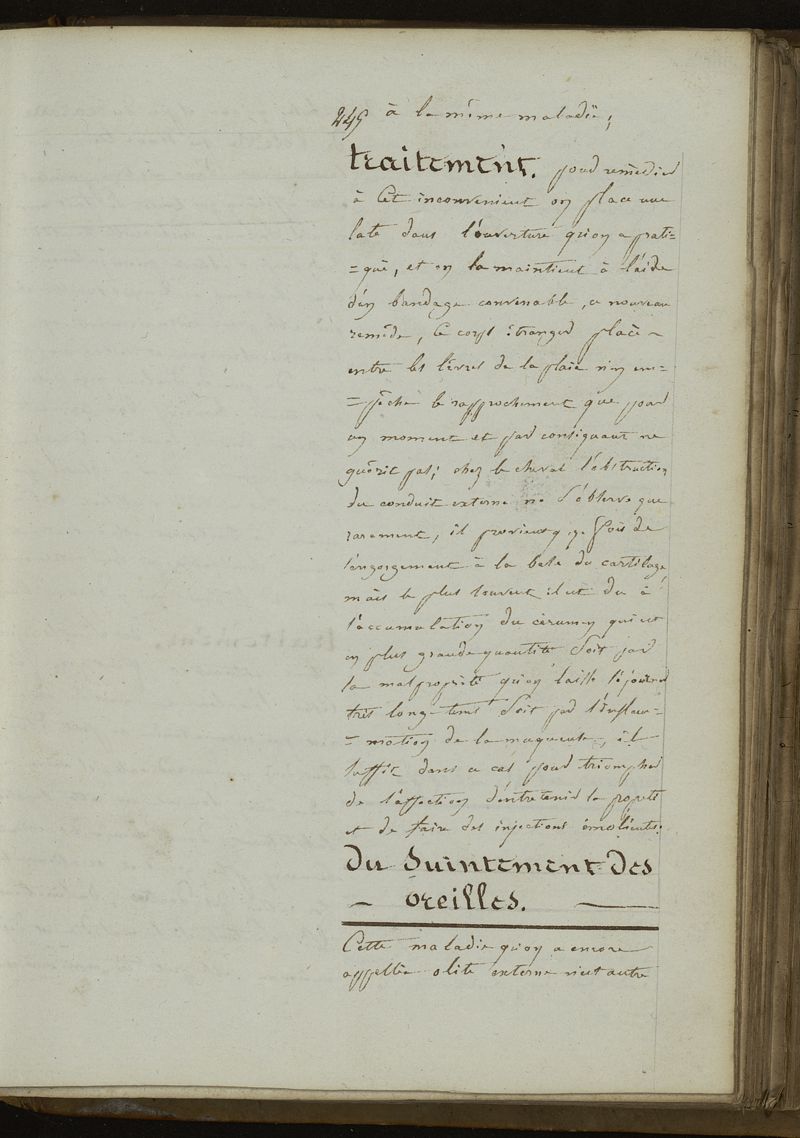 245 à la même maladie;
traitement. pour remèdier
à Cet inconvenient on place une
late dans l'ouverture qu'on a prati=
=què, et on la maintient à l'aide
d'un bandage convenable, ce nouveau
remède, le corps ètranger placè
entre les lèvres de la plaie n'en em=
=pèche le rapprochement que pour
un moment et par consiquant ne
guèrit pas; chez le cheval l'obstruction
du conduit externe ne s'observe que
rarement, il provient q.q. fois de
l'engorgement à la base du cartilage
mais le plus souvent il est du à
l'accumulation du cérumen qui est
en plus grande quantité soit par
la malpropreté qu'on laisse séjourner
très long-tems soit par l'inflam=
=mation de la muqueuse, il
suffit dans ce cas pour triompher
de l'affection d'entretenir la propreté
et de faire des injections émolientes.
Du Suintement des
oreilles.
Cette maladie qu'on a encore
appellée otite externe n'est autre